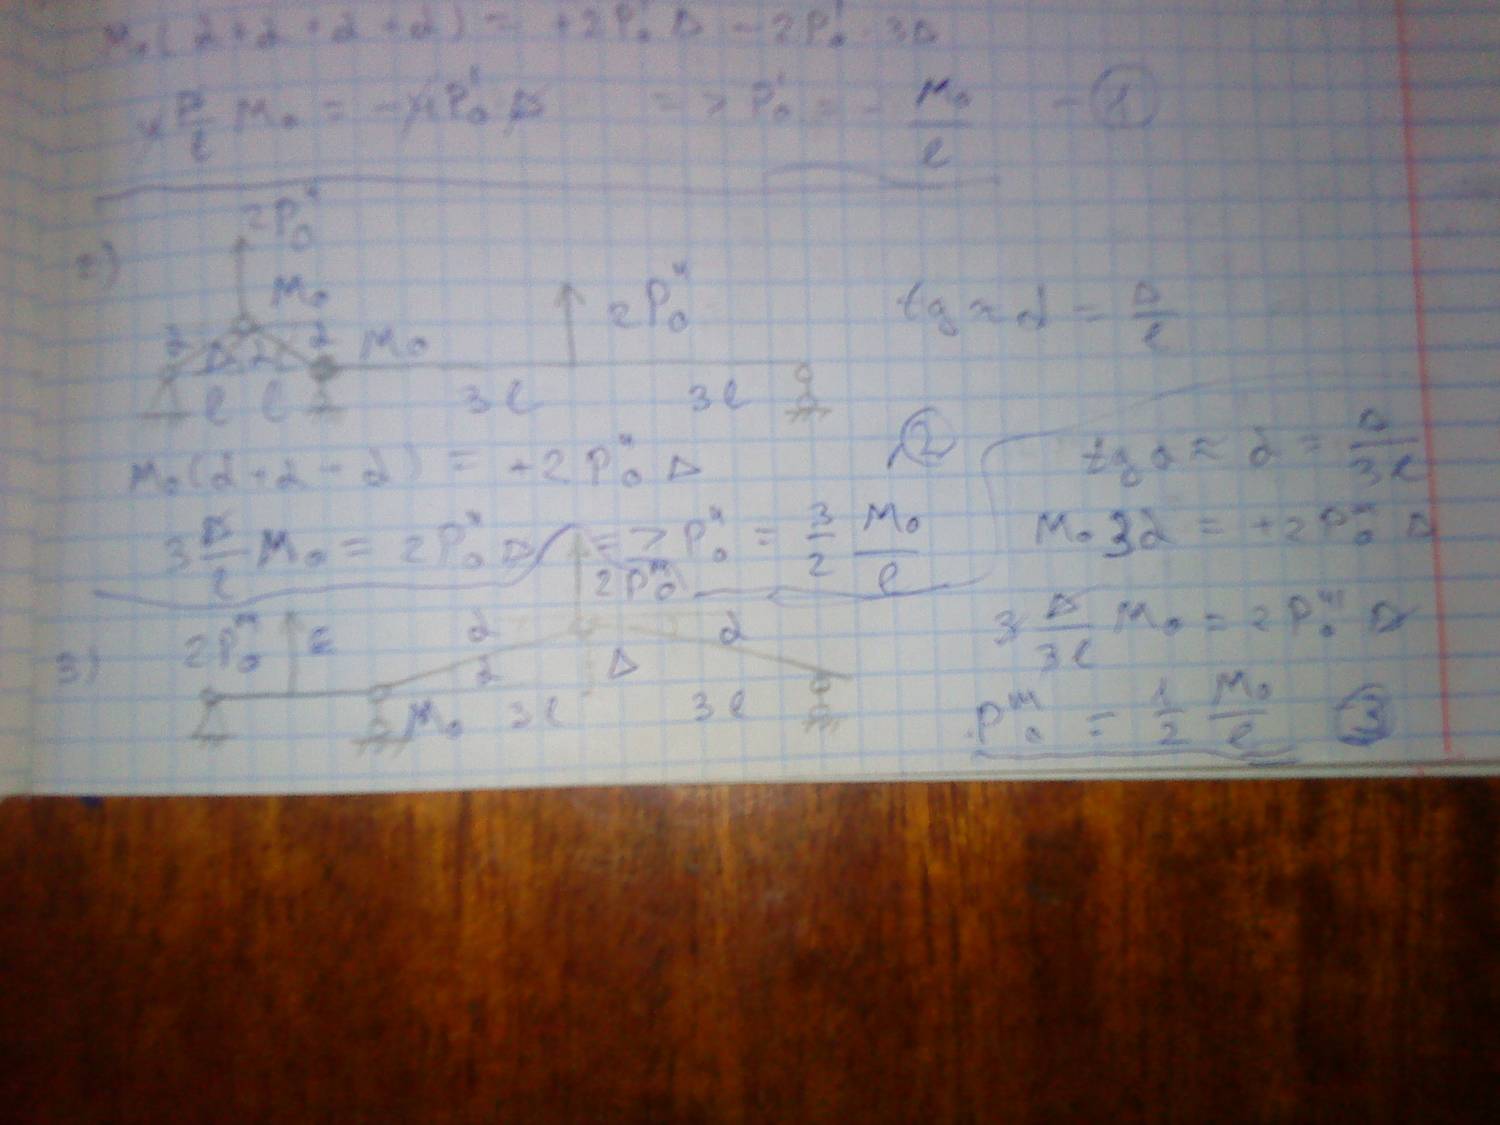 M₀(α+α+α+α) = +2P₀ᴵ Δ − 2P₀ᴵ · 3Δ
M₀ = −4P₀ᴵ Δ => P₀ᴵ = − M₀/l − ①
2)
2P₀ᴵᴵ
M₀
α Δ α α M₀
2P₀ᴵᴵ
tg ≈ α = Δ/l
l l 3l 3l
M₀(α+α+α) = +2P₀ᴵᴵ Δ ②
3 Δ/l M₀ = 2P₀ᴵᴵ Δ => P₀ᴵᴵ = 3/2 M₀/l
tg α ≈ α = Δ/3l
M₀ 3α = +2P₀ᴵᴵᴵ Δ
3 Δ/3l M₀ = 2P₀ᴵᴵᴵ Δ
P₀ᴵᴵᴵ = 1/2 M₀/l ③
3)
2P₀ᴵᴵᴵ
2P₀ᴵᴵᴵ
α α
α Δ
M₀ 3l 3l